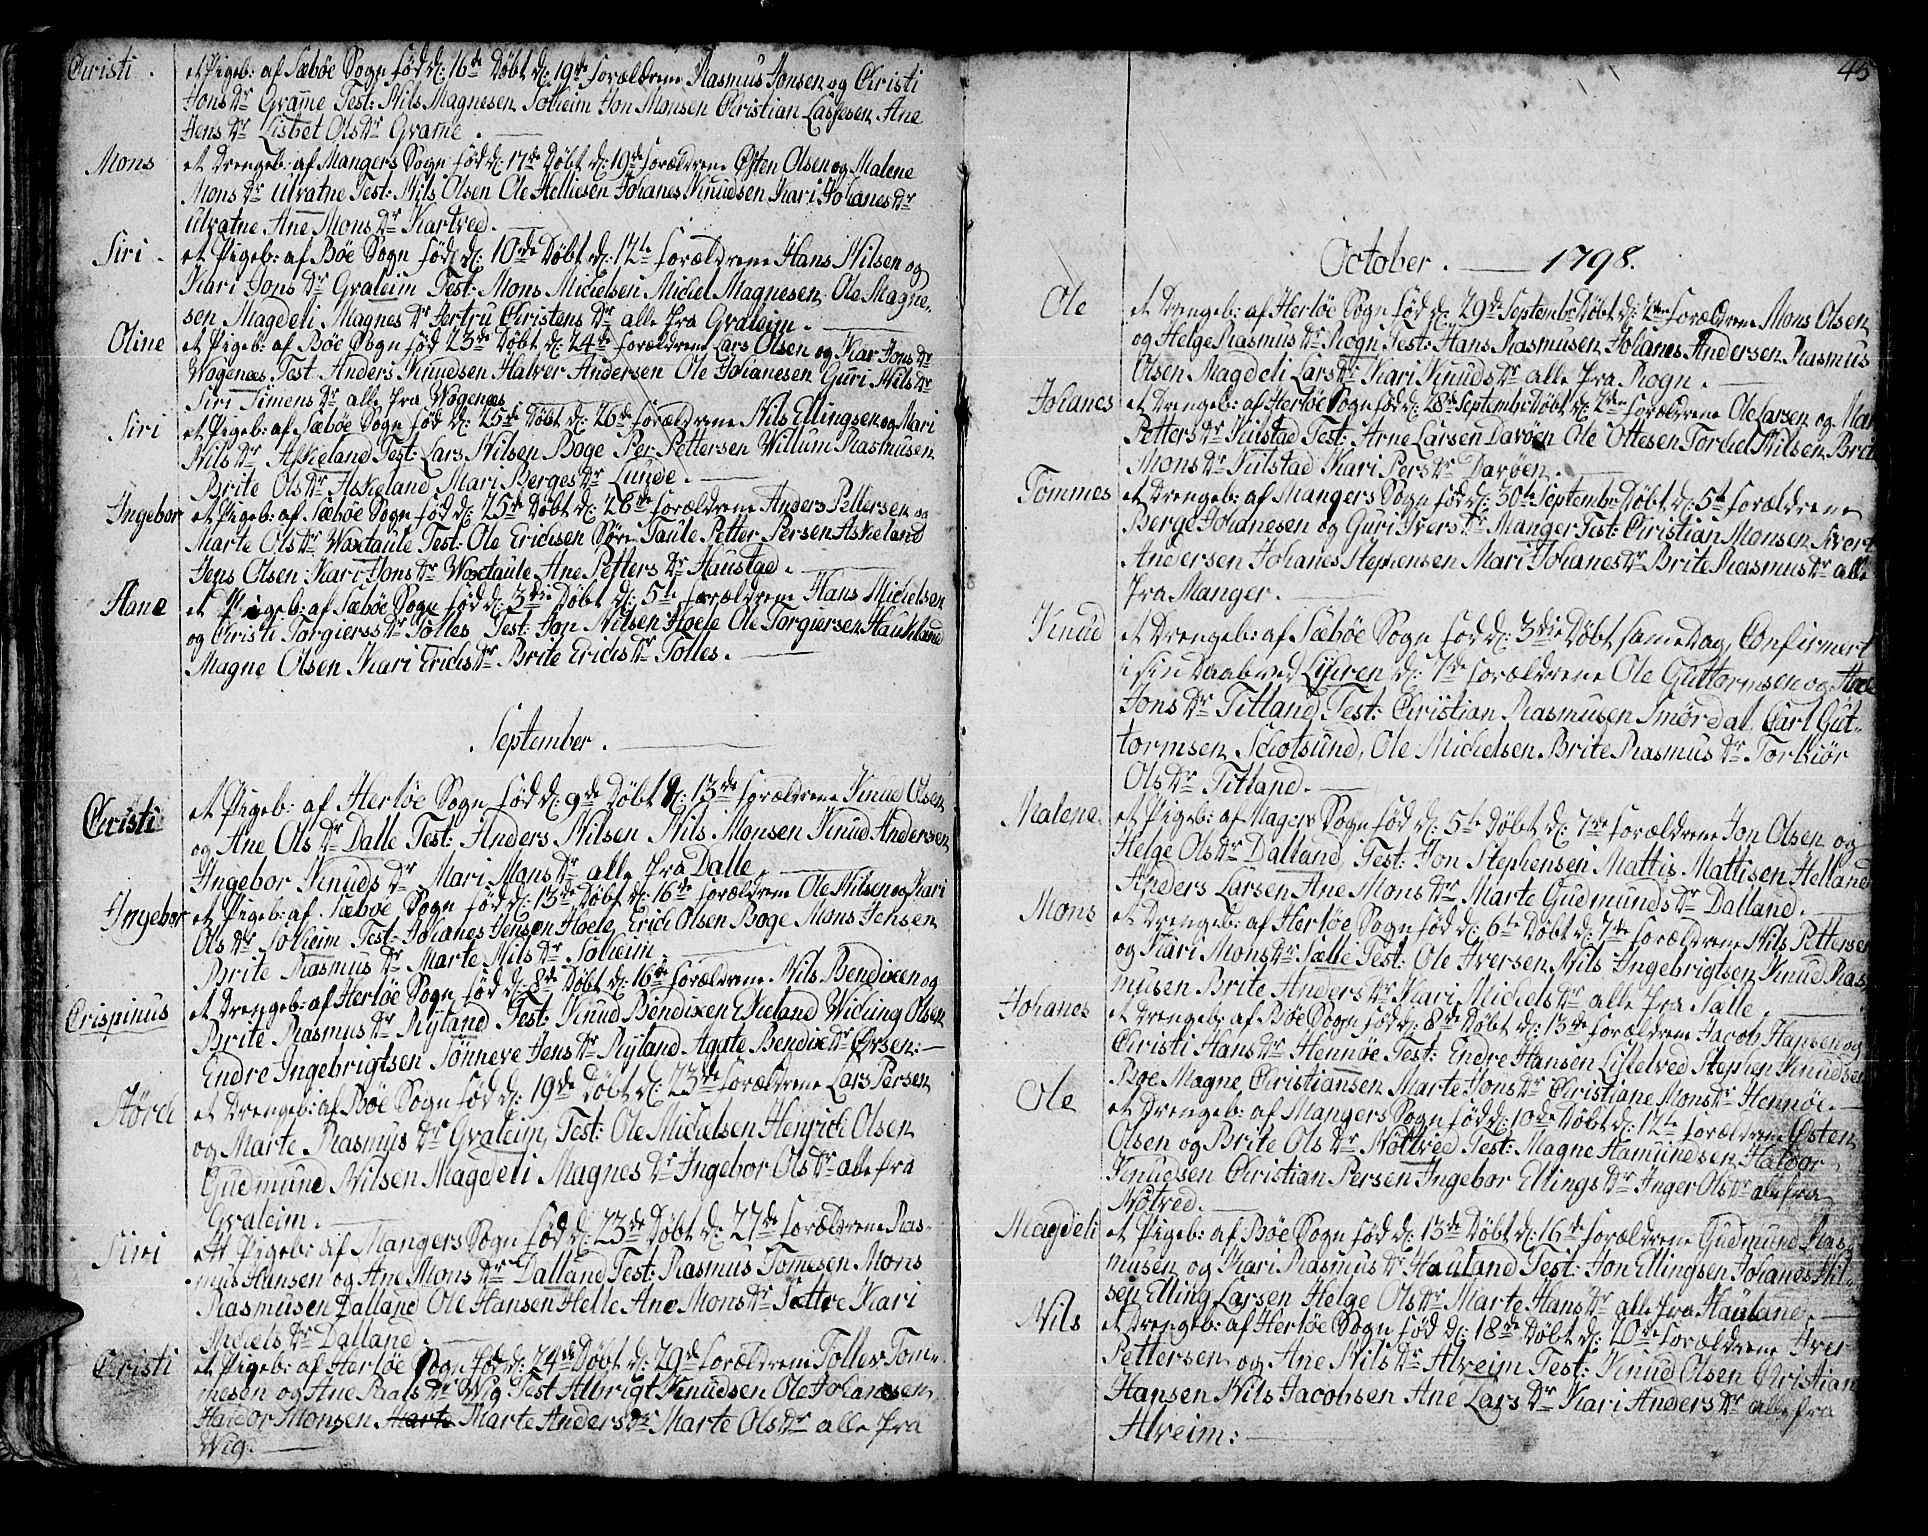 Christi . et Pigeb: af Sæbøe Sogn fød d: 16de Døbt d: 19de forældrene Rasmus Jonsen og Christi
Jons Dr Grame Test: Nils Magnesen Solheim Jon Monsen Christian Lassesen Ane
Jens Dr Lisbet Ols Dr Grame .
Mons et Drengeb: af Mangers Sogn fød d: 17de Døbt d: 19de forældrene Østen Olsen og Malene
Mons Dr Ulvatne Test: Nils Olsen Ole Helliesen Johanes Knudsen Kari Johanes Dr
Ulvatne Ane Mons Dr Kartved .
Siri . et Pigeb: af Bøe Sogn fød d: 10de Døbt d: 12te forældrene Hans Nilsen og
Kari Jons Dr Gvaleim Test: Mons Michelsen Michel Magnesen Ole Magne-
sen Magdeli Magnes Dr Jertru Christens Dr alle fra Gvaleim .
Oline et Pigeb: af Bøe Sogn fød 23de Døbt d: 24de forældrene Lars Olsen og Kar Jons Dr
Wogenæs Test Anders Knudsen Halver Andersen Ole Johanesen Guri Nils Dr
Siri Simens Dr alle fra Wogenæs
Siri et Pigeb: af Sæbøe Sogn fød d: 25de Døbt d: 26de forældrene Nils Ellingsen og Mari
Nils Dr Askeland Test: Lars Nilsen Boge Per Pettersen Willum Rasmusen
Brite Ols Dr Askeland Mari Berges Dr Lunde .
Ingebor et Pigeb: af Sæbøe Sogn fød d: 25de Døbt d: 26de forældrene Anders Pettersen og
Marte Ols Dr Woxtaule Test: Ole Erichsen Søre Taule Petter Persen Askeland
Jens Olsen Kari Jons Dr Woxtaule Ane Petters Dr Haustad .
Hane et Pigeb: af Sæbøe Sogn fød d: 3die Døbt d: 5te forældrene Hans Michelsen
og Christi Torgierss Dr Tolles Test: Jon Nilsen Hoele Ole Torgiersen Haukland
Magne Olsen Kari Erichs Dr Brite Erichs Dr Tolles .
September .
Christi et Pigeb: af Herløe Sogn fød d: 9de Døbt d: 13de forældrene Knud Olsen
og Ane Ols Dr Dalle Test: Anders Nilsen Nils Monsen Knud Andersen
Ingebor Knuds Dr Mari Mans Dr alle fra Dalle
Ingebor et Pigeb: af Sæbøe Sogn fød d: 13de Døbt d: 16de forældrene Ole Nilsen og Kari
Ols Dr Solheim Test: Johanes Jensen Hoele Erich Olsen Boge Mons Jensen
Brite Rasmus Dr Marte Nils Dr Solheim .
Crispinus et Drengeb: af Herløe Sogn fød d: 8de Døbt d: 16de forældrene Nils Bendixen og
Brite Rasmus Dr Ryland Test: Knud Bendixen Ekeland Wiching Olsen
Endre Ingebrigtsen Sønneve Jens Dr Ryland Agate Bendix Dr Ørsen :
Størch et Drengeb: af Bøe Sogn fød d: 19de Døbt d: 23de forældrene Lars Persen
og Marte Rasmus Dr Gvaleim Test: Ole Michelsen Henrich Olsen
Gudmund Nilsen Magdeli Magnes Dr Ingebor Ols Dr alle fra
Gvaleim .
Siri Et Pigeb: af Mangers Sogn fød d: 23de Døbt d: 27de forældrene Ras-
mus Hansen og Ane Mons Dr Dalland Test: Rasmus Tomesen Mons
Rasmusen Dalland Ole Hansen Helle Ane Mons Dr Sættre Kari
Michels Dr Dalland .
Christi et Pigeb: af Herløe Sogn fød d: 24de Døbt d: 29de forældrene Tollev Tom-
mesen og Ane Raals Dr Wig Test Albrigt Knudsen Ole Johansen
Haldor Monsen Marte Marte Anders Dr Marte Ols Dr alle fra
Wig .
45
October . 1798.
Ole et Drengeb: af Herløe Sogn fød d: 29de Septembr Døbt d: 2den forældrene Mons Olsen
og Helge Rasmus Dr Rogn Test: Hans Rasmusen Johanes Andersen Rasmus
Olsen Magdeli Lars Dr Kari Knuds Dr alle fra Rogn .
Johanes et Drengeb: af Herløe Sogn fød d: 28de Septembr Døbt d: 2den forældrene Ole Larsen og Mari
Petters Dr Kulstad Test: Arne Larsen Davøen Ole Ottesen Torchel Nilsen Brite
Mons Dr Kulstad Kari Pers Dr Davøen .
Tommes et Drengeb: af Mangers Sogn fød d: 30te Septembr Døbt d: 5te forældrene
Berge Johanesen og Guri Ivers Dr Manger Test: Christian Monsen Sivert
Andersen Johanes Stephensen Mari Johanes Dr Brite Rasmus Dr alle
fra Manger .
Knud et Drengeb: af Sæbøe Sogn fød d: 3die Døbt same Dag, Confirmert
i sin Daab ved Kirken d: 7de forældrene Ole Guttormsen og
Jons Dr Titland Test: Christian Rasmusen Smørdal, Carl Gut-
tormsen Schotsund, Ole Michelsen Brite Rasmus Dr Torbiør
Ols Dr Titland .
Malene . et Pigeb: af Magers Sogn fød d: 5te Døbt d: 7de forældrene Jon Olsen og
Helge Ols Dr Dalland Test: Jon Stephensen Mattis Mattisen Helland
Anders Larsen Ane Mons Dr Marte Gudmunds Dr Dalland .
Mons et Drengeb: af Herløe Sogn fød d: 6te Døbt d: 7de forældrene Nils Pettersen
og Kari Mons Dr Sælle Test: Ole Iversen Nils Ingebrigtsen Knud Ras-
musen Brite Anders Dr Kari Michels Dr alle fra Salle .
Johanes et Drengeb: af Bøe Sogn fød d: 8de Døbt d: 13de forældrene Jacob Hansen og
Christi Hans Dr Hennøe Test: Endre Hansen Lillelved Stephen Knudsen
Boe Magne Christiansen Marte Jons Dr Christiane Mons Dr Hennøe .
Ole et Drengeb: af Mangers Sogn fød d: 10de Døbt d: 12te forældrene Østen
Olsen og Brite Ols Dr Nøttved Test: Magne Hamundsen Haldor
Knudsen Christian Persen Ingebor Ellings Dr Inger Ols Dr alle fra
Nøtved .
Magdeli et Pigeb: af Bøe Sogn fød d: 13de Døbt d: 16de forældrene Gudmund Ras-
musen og Kari Rasmus Dr Hauland Test: Jon Ellingsen Johanes Nil-
sen Elling Larsen Helge Ols Dr Marte Hans Dr alle fra Hauland .
Nils et Drengeb: af Herløe Sogn fød d: 18de Døbt d: 20de forældrene Iver
Pettersen og Ane Nils Dr Alveim Test: Knud Olsen Christian
Hansen Nils Jacobsen Ane Lars Dr Kari Anders Dr alle fra
Alveim :